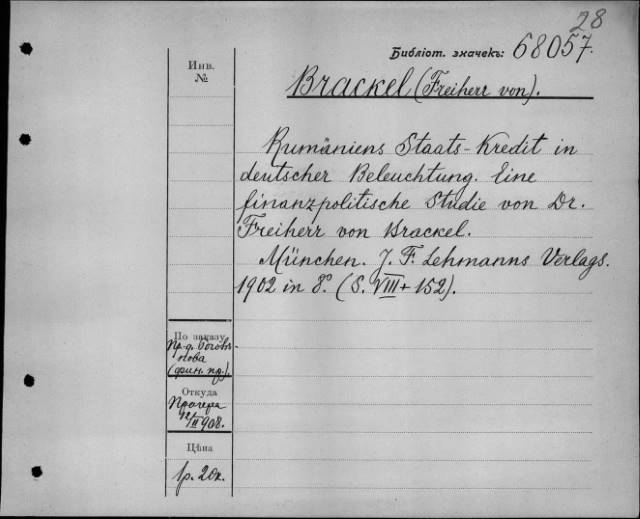 28
Библіот. значекъ: 68057.
Инв.
№
Brackel (Freiherr von).
Rumäniens Staats-Kredit in
deutscher Beleuchtung. Eine
finanzpolitische Studie von Dr.
Freiherr von Brackel.
München. J. F. Lehmanns Verlags.
1902 in 8°. (S. VIII + 152).
По заказу
Пр-д.
(фин. пр.).
Откуда
12/II 908.
Цѣна
1р. 20к.